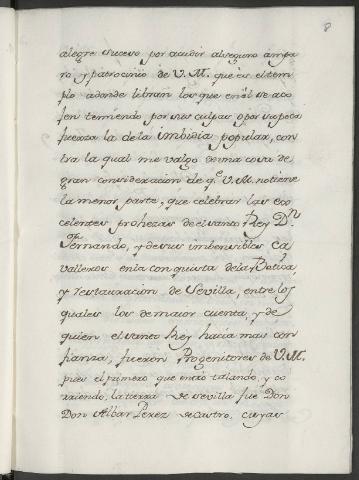 8
alegre suceso por acudir al seguro ampa
ro, y patrocinio de V. M. que es el tem
plo adonde libran los que en él se aco
jen temiendo por sus culpas o por su poca
fuerza la de la imbidia popular, con
tra la qual me valgo de una cosa de
gran consideracion de q.e V. M. no tiene
la menor parte, que celebrar las exc
celentes prohezas de el santo Rey D.n
Fernando, y de sus imbensibles Ca
valleros en la conquista de la Betica,
y restauracion de Sevilla, entre los
quales los de maior cuenta, y de
quien el santo Rey hacia mas con
fianza, fueron Progenitores de V. M.
pues el primero que entró talando, y co
rriendo la tierra de Sevilla fue Don
Don Albar Perez de Castro, cuyas